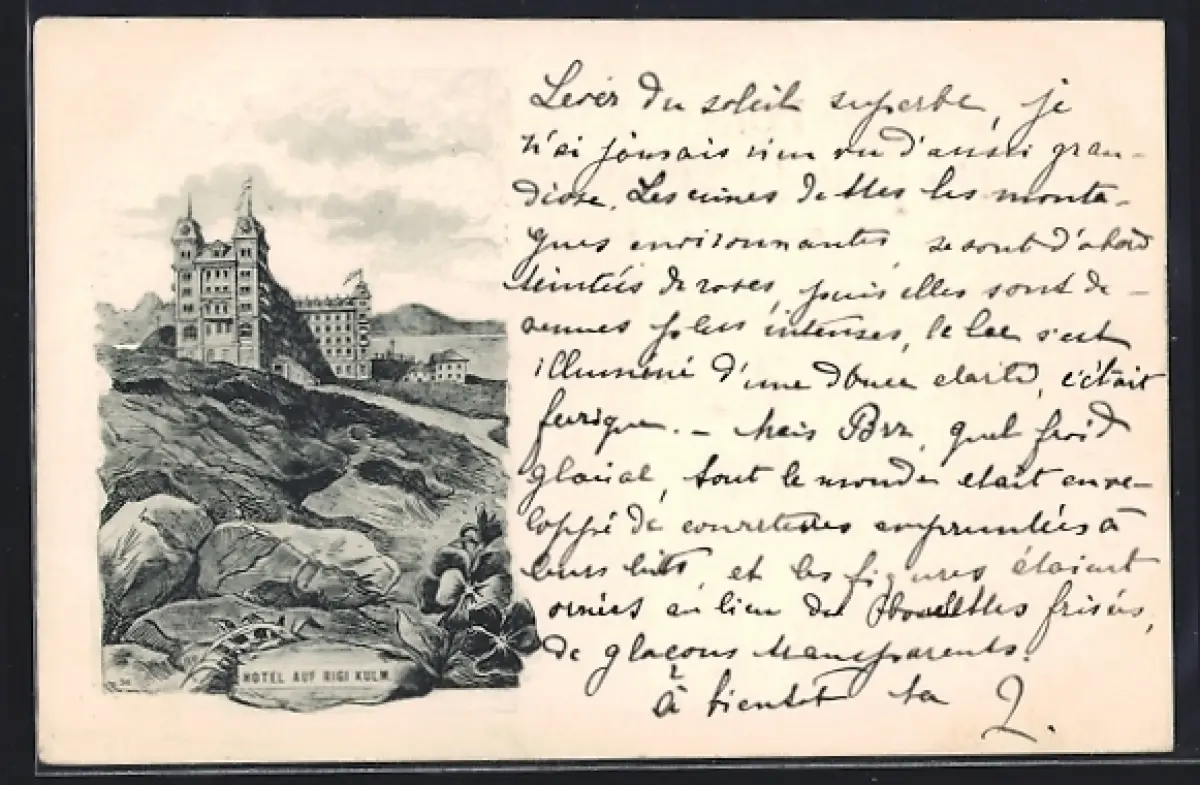 Lever du soleil superbe, je
n'ai jamais rien vu d'aussi gran-
diose. Les cimes de ttes les monta-
gnes environnantes, se sont d'abord
teintées de roses, puis elles sont de-
venues plus intenses, le lac s'est
illuminé d'une douce clarté, c'était
feerique. – Mais Brr, quel froid
glacial, tout le monde etait enve-
loppé de couvertures empruntées à
leurs lits, et les figures étaient
ornées au lieu de frisées,
de glaçons transparents.
à bientôt ta
HOTEL AUF RIGI KULM.